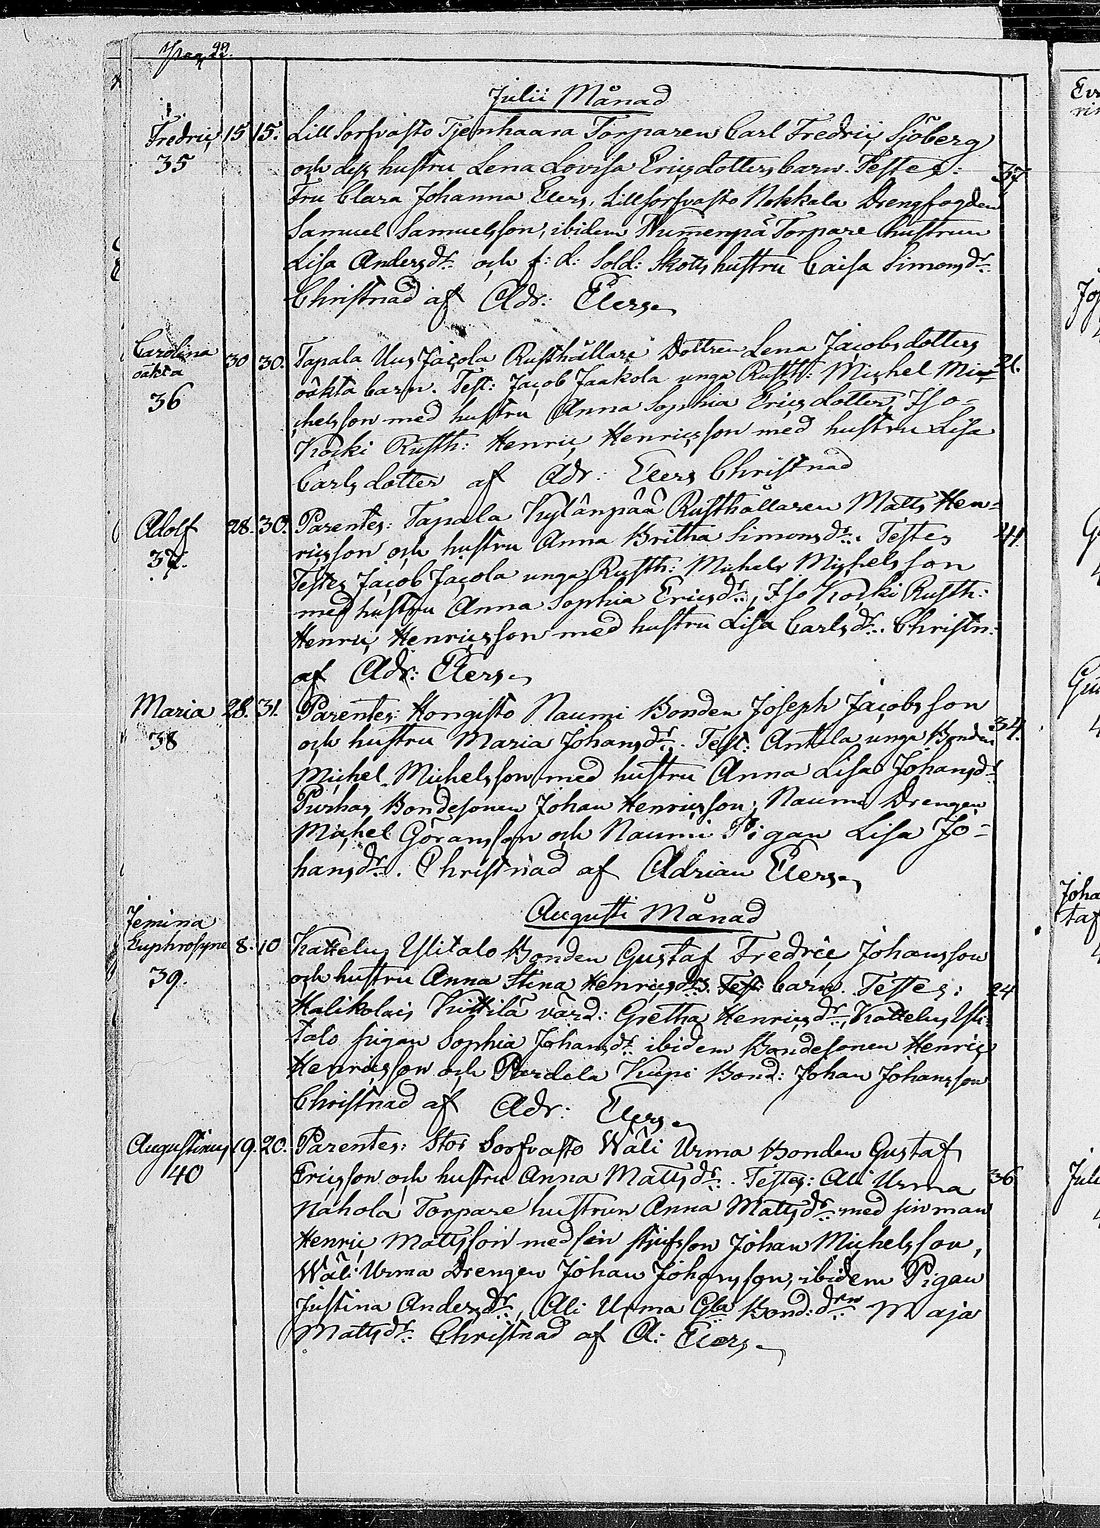 Pag. 22.
Julii Månad
Fredric 15 15. Lill Sorfvasto Tjenhaara Torparen Carl Fredric Sjöberg
35 och dess hustru Lena Lovisa Ericsdotters barn. Testes: 37.
Fru Clara Johanna Elers, Lillsorfvasto Nokkala Drengfogden
Samuel Samuelsson, ibidem Nummenpä Torpare hustrun
Lisa Andersdr. och f: d: Sold: Skotts hustru Caisa Simonsdr.
Christnad af Adr: Elers
Carolina 30 30. Tapala Uus Jacola Rusthållare Dottren Lena Jacobsdotters 21.
oäkta oäkta barn. Test: Jacob Jaakola unga Rusth: Michel Mi-
36 chelsson med hustru Anna Sophia Ericsdotter, Iso-
Kocki Rusth: Henric Henricsson med hustru Lisa
Carlsdotter af Adr: Elers Christnad
Adolf 28. 30. Parentes: Tapala Kylänpää Rusthållaren Matts Hen- 41.
37. ricsson och hustru Anna Britha Simonsdr. Testes
Testes Jacob Jacola unga Rusth: Michels Michelsson
med hustru Anna Sophia Ericsdr., Iso Kocki Rusth:
Henric Henricsson med hustru Lisa Carlsdr. Christn:
af Adr: Elers
Maria 28. 31. Parentes: Hongisto Naumi Bonden Joseph Jacobsson
38 och hustru Maria Johansdr. Test: Antila unga Bonden 34.
Michel Michelsson med hustru Anna Lisa Johansdr
Purhas Bondesonen Johan Henricsson, Naumi Drengen
Michel Göransson och Naumi Pigan Lisa Jo-
hansdr. Christnad af Adrian Elers
Augusti Månad
Jemina
Euphrosyne 8. 10 Kattelus Ylitalo Bonden Gustaf Fredric Johansson
39. och hustru Anna Stina Henricsdrs barn. Testes: 24
Halikolais Kittilä värd: Gretha Henricsdr, Kattelus Yli-
talo pigan Sophia Johansdr. ibidem Bondesonen Henric
Henricsson och Pardela Kupi Bond: Johan Johansson
Christnad af Adr: Elers
Augustinus 19. 20. Parentes: Stor Sorfvasto Wäli Urma Bonden Gustaf
40 Ericsson och hustru Anna Mattsdr. Testes: Ali Urma 36
Nahola Torpare hustrun Anna Mattsdr. med sin man
Henric Mattsson med sin stiufson Johan Michelsson,
Wäli Urma Drengen Johan Johansson, ibidem Pigan
Justina Andersdr., Ali Urma Gla Bond: drn Maja
Mattsdr: Christnad af A: Elers